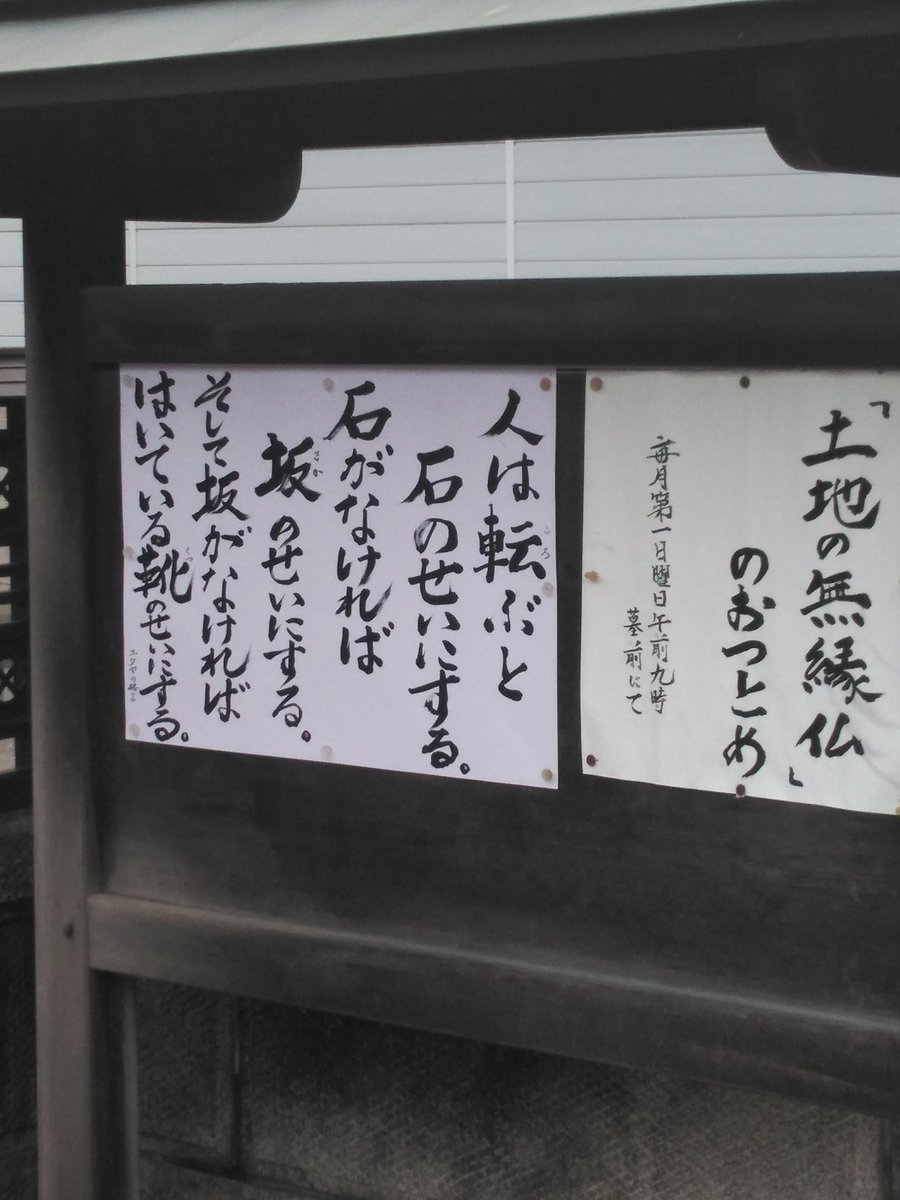 「土地の無縁仏」
のおつとめ
毎月第一日曜日午前九時
墓前にて
人は転ぶと
ころ
石のせいにする。
石がなければ
坂のせいにする。
さか
そして坂がなければ
はいている靴のせいにする。
くつ